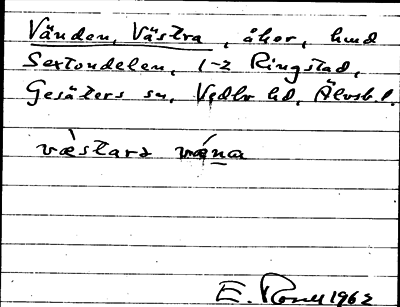 Vänden, Västra, åker, hmd
Sextondelen, 1-2 Ringstad,
Gesäters sn, Vedbo hd, Älvsb. l.
væ̀stara vána
E. 1962